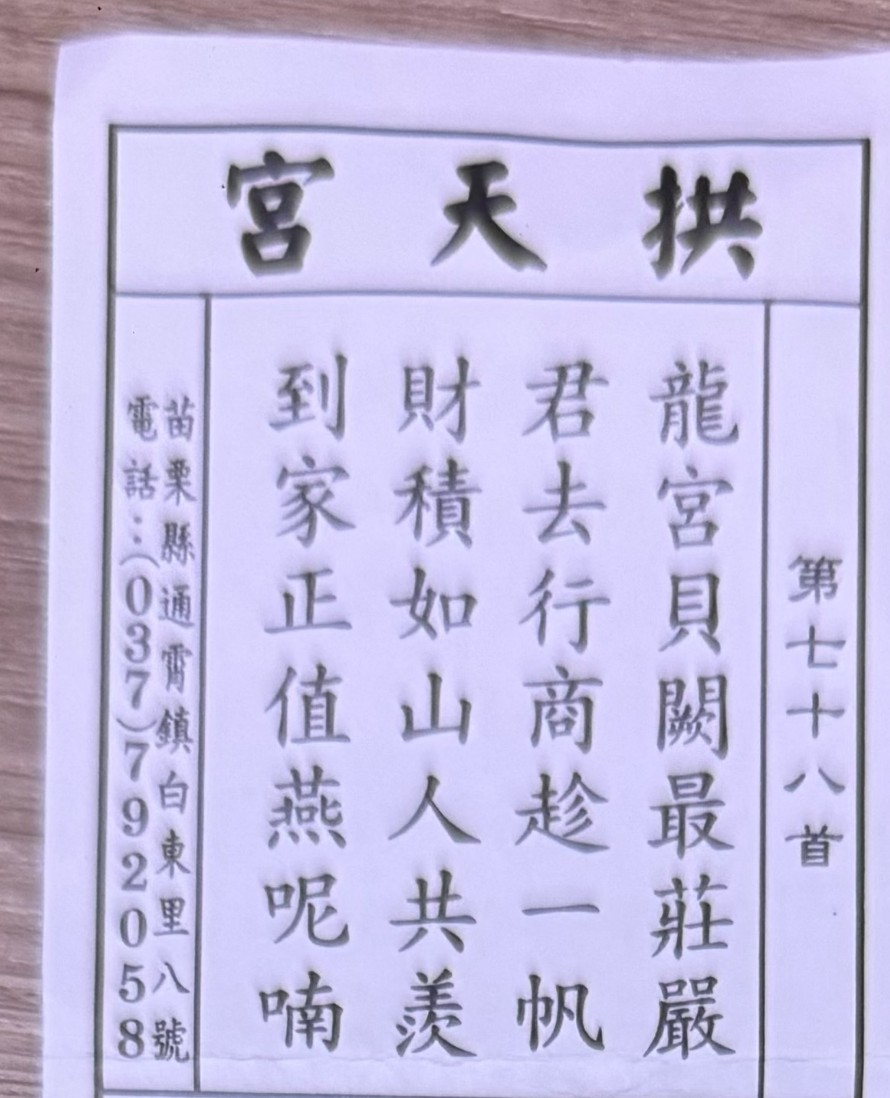 拱天宮
第七十八首
龍宮貝闕最莊嚴
君去行商趁一帆
財積如山人共羨
到家正值燕呢喃
苗栗縣通霄鎮白東里八號
電話：(037)792058